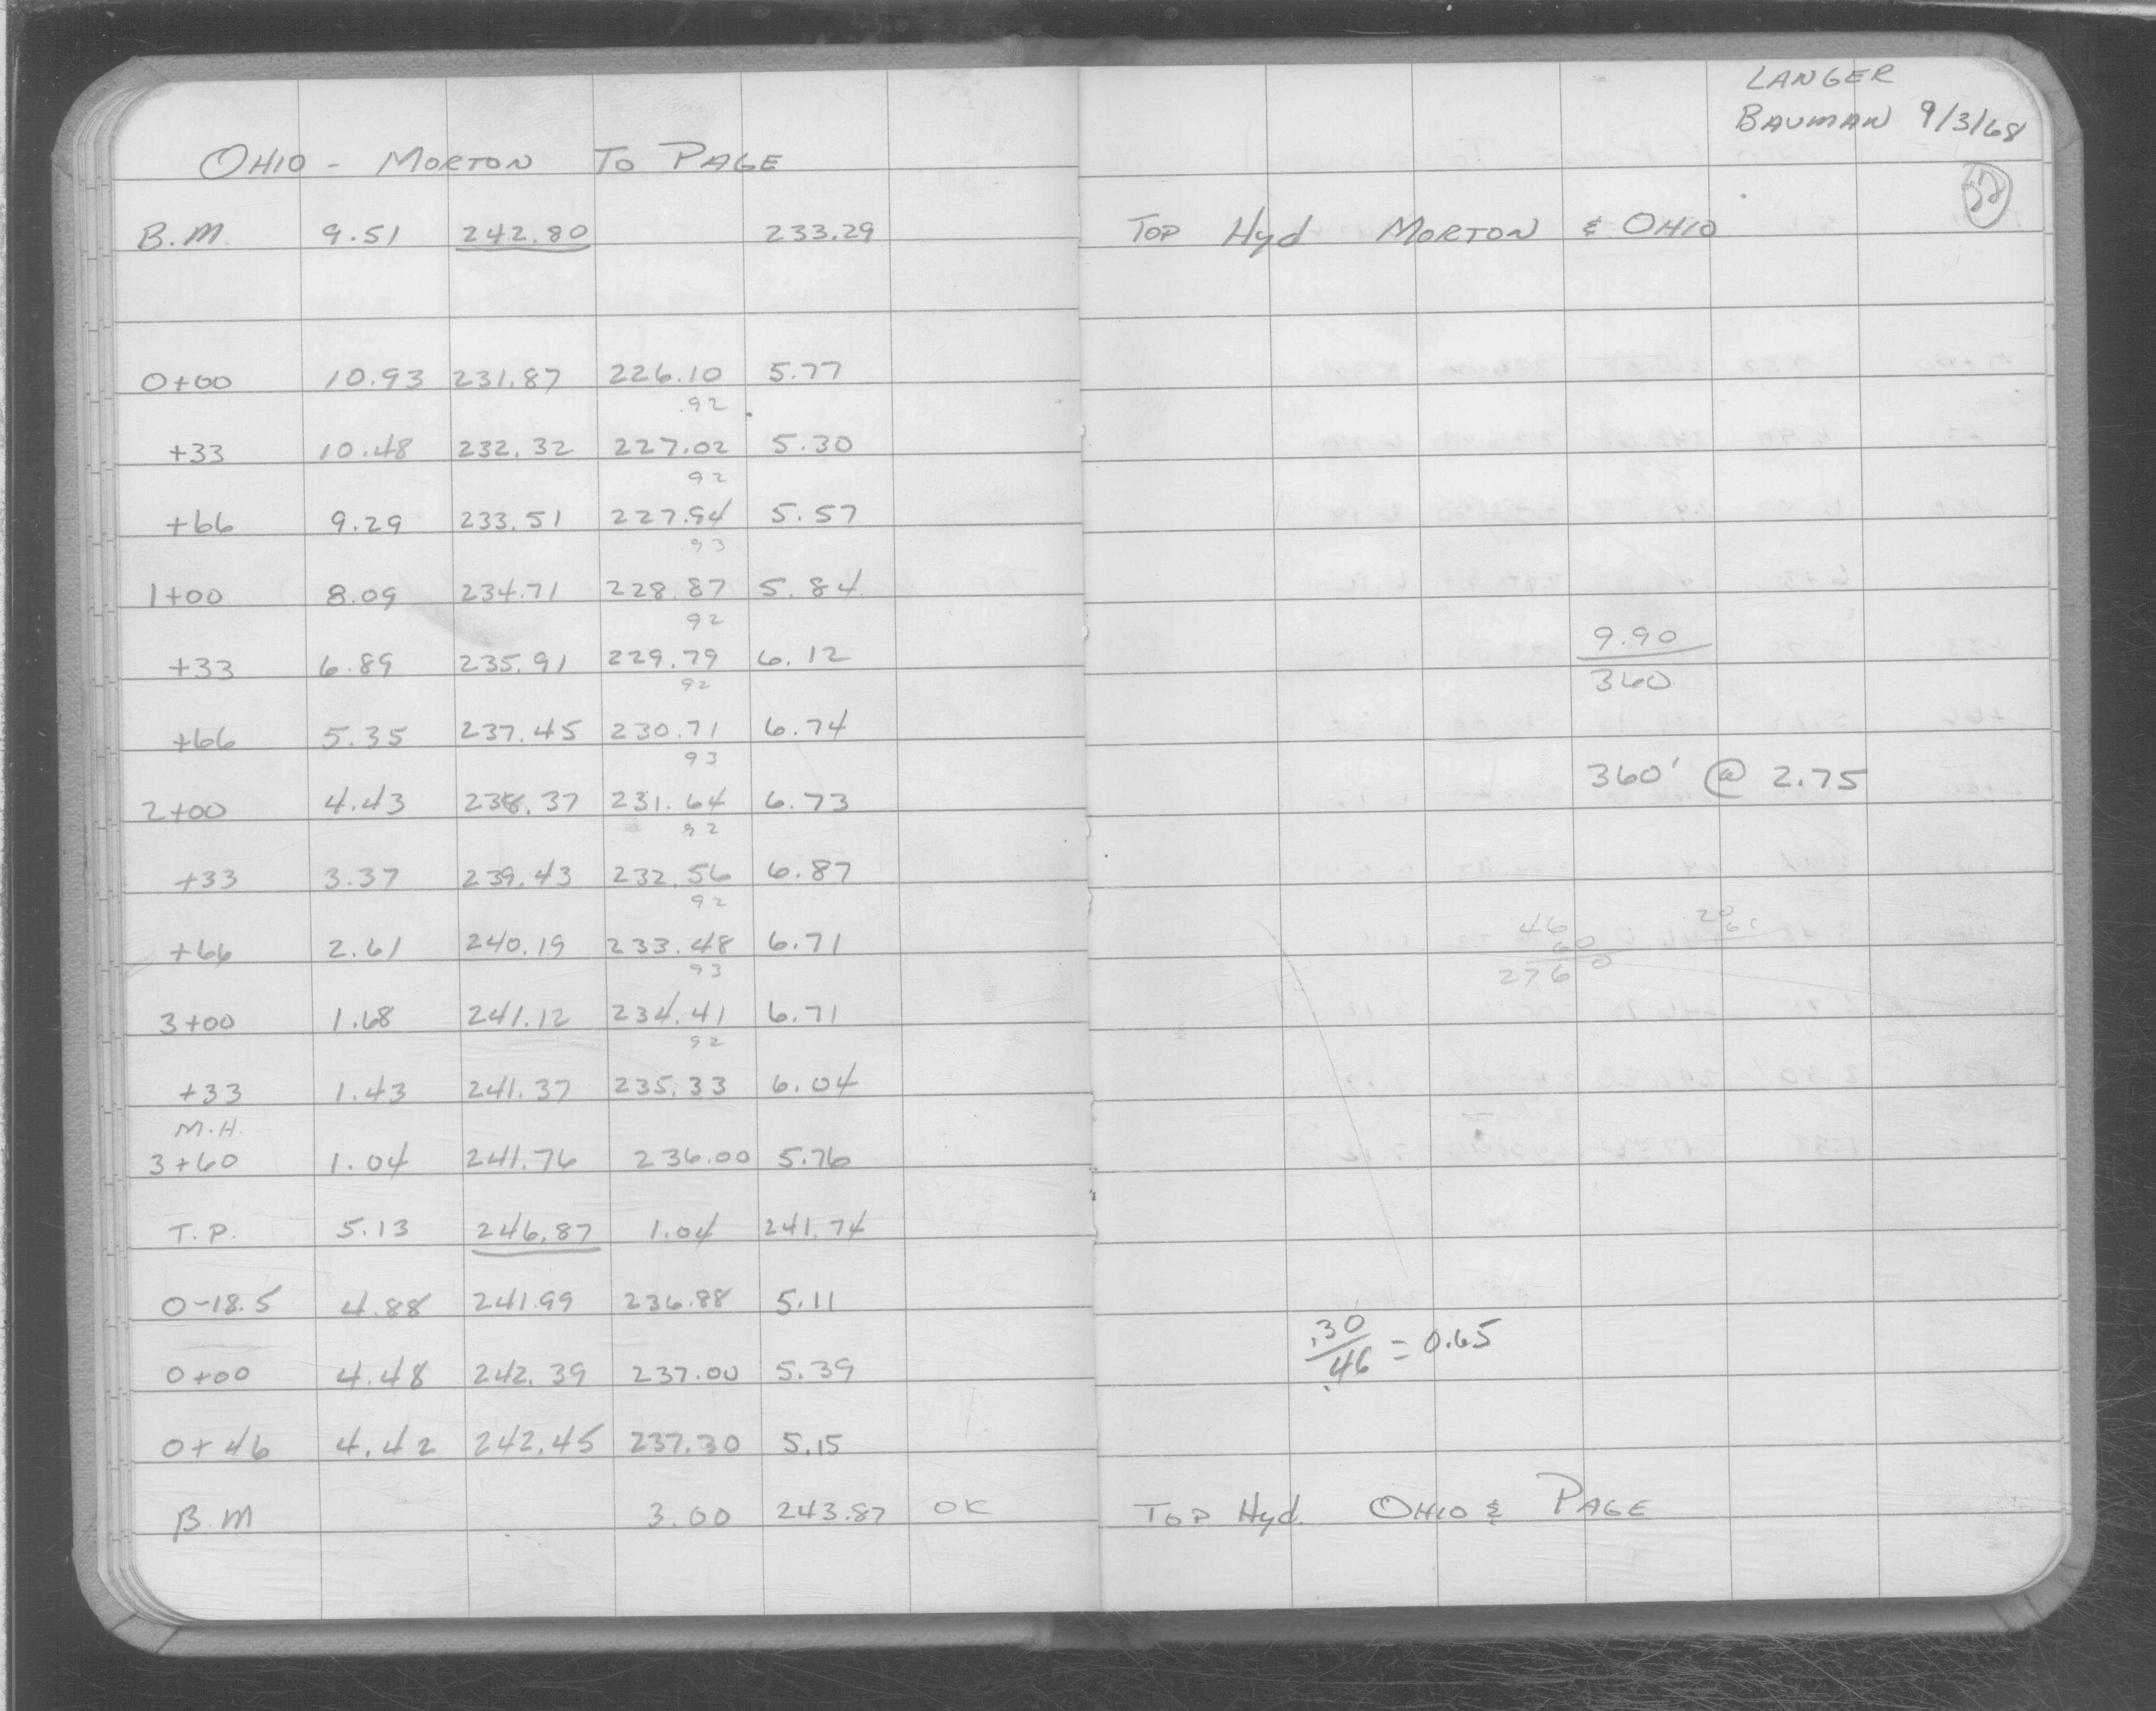 OHIO - MORTON TO PAGE
B.M. 9.51 242.80 233.29
0+00 10.93 231.87 226.10 5.77
.92
+33 10.48 232.32 227.02 5.30
92
+66 9.29 233.51 227.94 5.57
93
1+00 8.09 234.71 228.87 5.84
92
+33 6.89 235.91 229.79 6.12
92
+66 5.35 237.45 230.71 6.74
93
2+00 4.43 238.37 231.64 6.73
92
+33 3.37 239.43 232.56 6.87
92
+66 2.61 240.19 233.48 6.71
93
3+00 1.68 241.12 234.41 6.71
92
+33 1.43 241.37 235.33 6.04
M.H.
3+60 1.04 241.76 236.00 5.76
T.P. 5.13 246.87 1.04 241.74
0-18.5 4.88 241.99 236.88 5.11
0+00 4.48 242.39 237.00 5.39
0+46 4.42 242.45 237.30 5.15
B.M 3.00 243.87 OK
LANGER
BAUMAN 9/3/68
TOP Hyd MORTON & OHIO
9.90
360
360' @ 2.75
46
60
2760
.30
.46 = 0.65
TOP Hyd. OHIO & PAGE